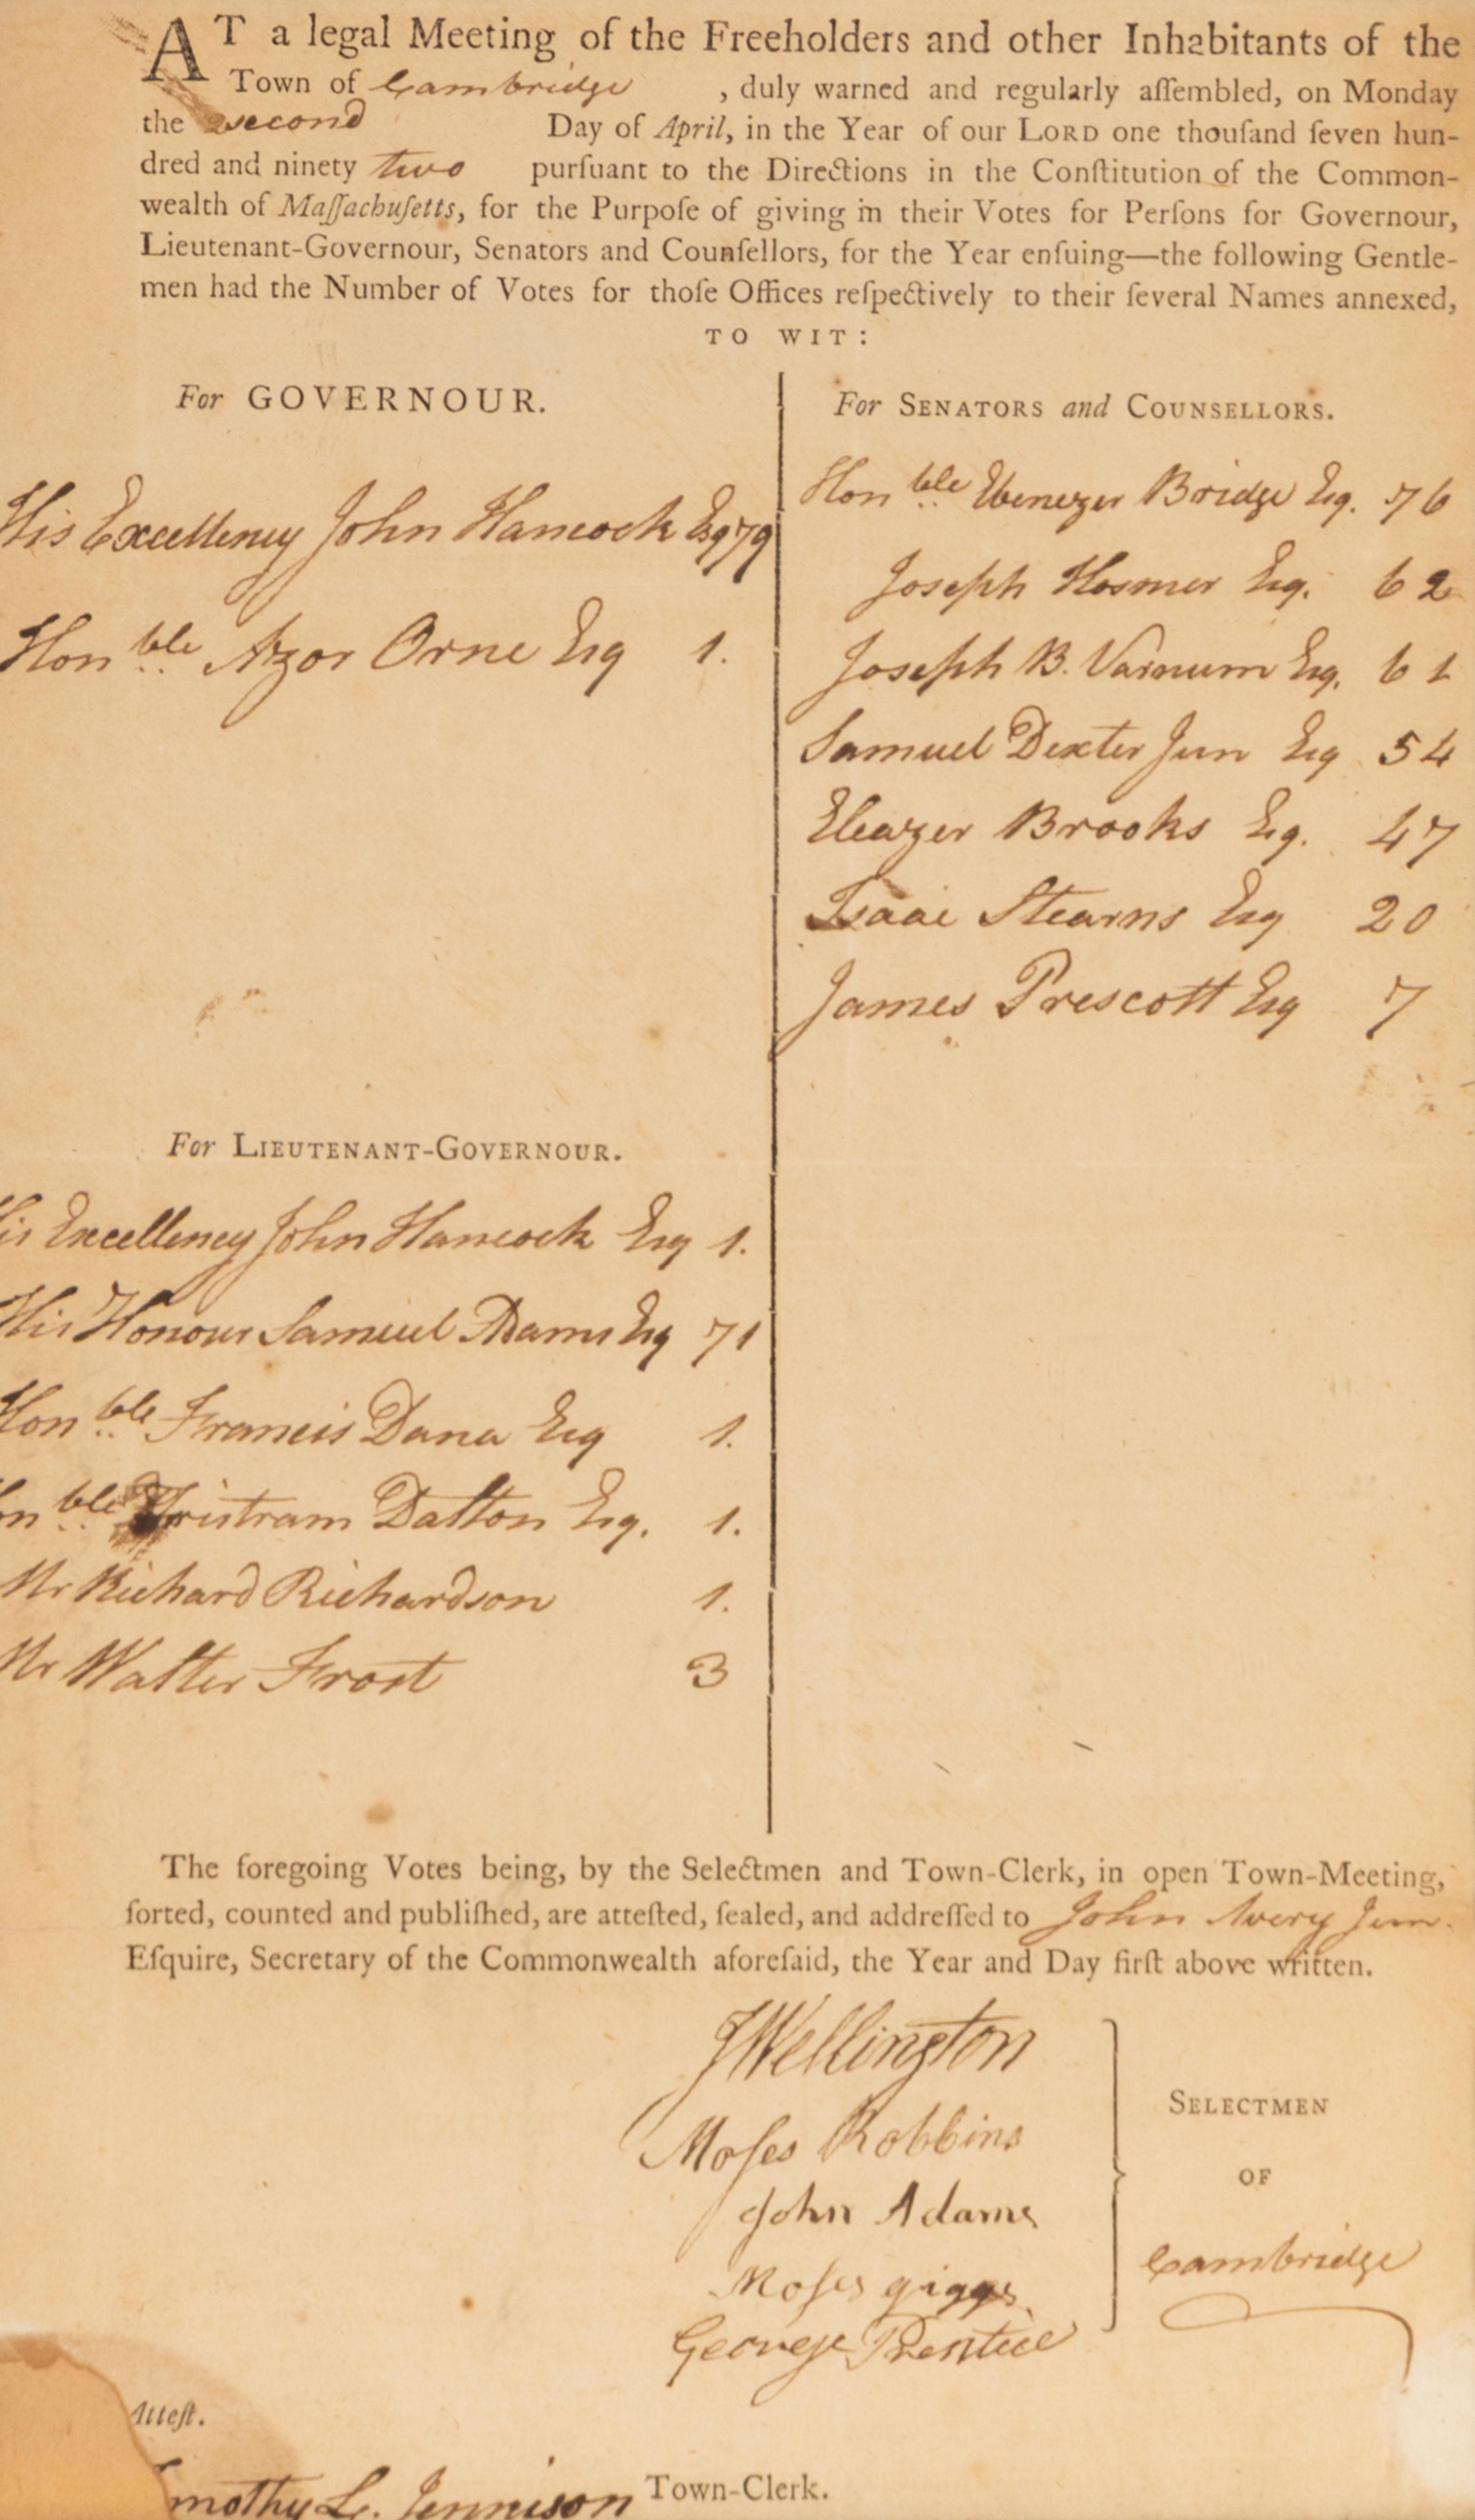 AT a legal Meeting of the Freeholders and other Inhabitants of the
Town of Cambridge , duly warned and regularly aſſembled, on Monday
the second Day of April, in the Year of our LORD one thouſand ſeven hun-
dred and ninety two purſuant to the Directions in the Conſtitution of the Common-
wealth of Maſſachuſetts, for the Purpoſe of giving in their Votes for Perſons for Governour,
Lieutenant-Governour, Senators and Counſellors, for the Year enſuing—the following Gentle-
men had the Number of Votes for thoſe Offices reſpectively to their ſeveral Names annexed,
TO WIT:
For GOVERNOUR.
His Excellency John Hancock Esq 79
Honble Azor Orne Esq 1.
For LIEUTENANT-GOVERNOUR.
His Excellency John Hancock Esq 1.
His Honour Samuel Adams Esq 71
Honble Francis Dana Esq 1.
Honble Tristram Dalton Esq. 1.
Mr Richard Richardson 1.
Mr Walter Frost 3
For SENATORS and COUNSELLORS.
Honble Ebenezer Bridge Esq. 76
Joseph Hosmer Esq. 62
Joseph B. Varnum Esq. 61
Samuel Dexter Jun Esq 54
Eleazer Brooks Esq. 47
Isaac Stearns Esq 20
James Prescott Esq 7
The foregoing Votes being, by the Selectmen and Town-Clerk, in open Town-Meeting,
ſorted, counted and publiſhed, are atteſted, ſealed, and addreſſed to John Avery Jun.
Eſquire, Secretary of the Commonwealth aforeſaid, the Year and Day firſt above written.
JWellington
Moſes Robbins
John Adams
Moſes griggs
George Prentice
SELECTMEN
OF
Cambridge
Atteſt.
mothy L. Jennison Town-Clerk.